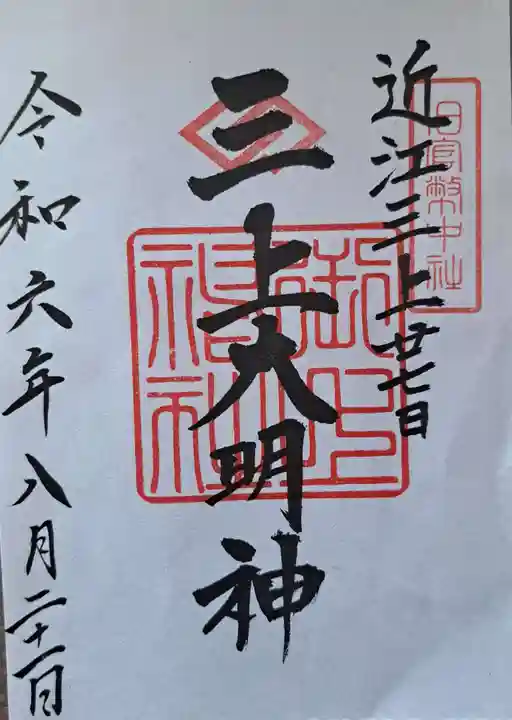 旧官幣中社
近江三上廿七日
三上大明神
御上神社
令和六年八月二十一日